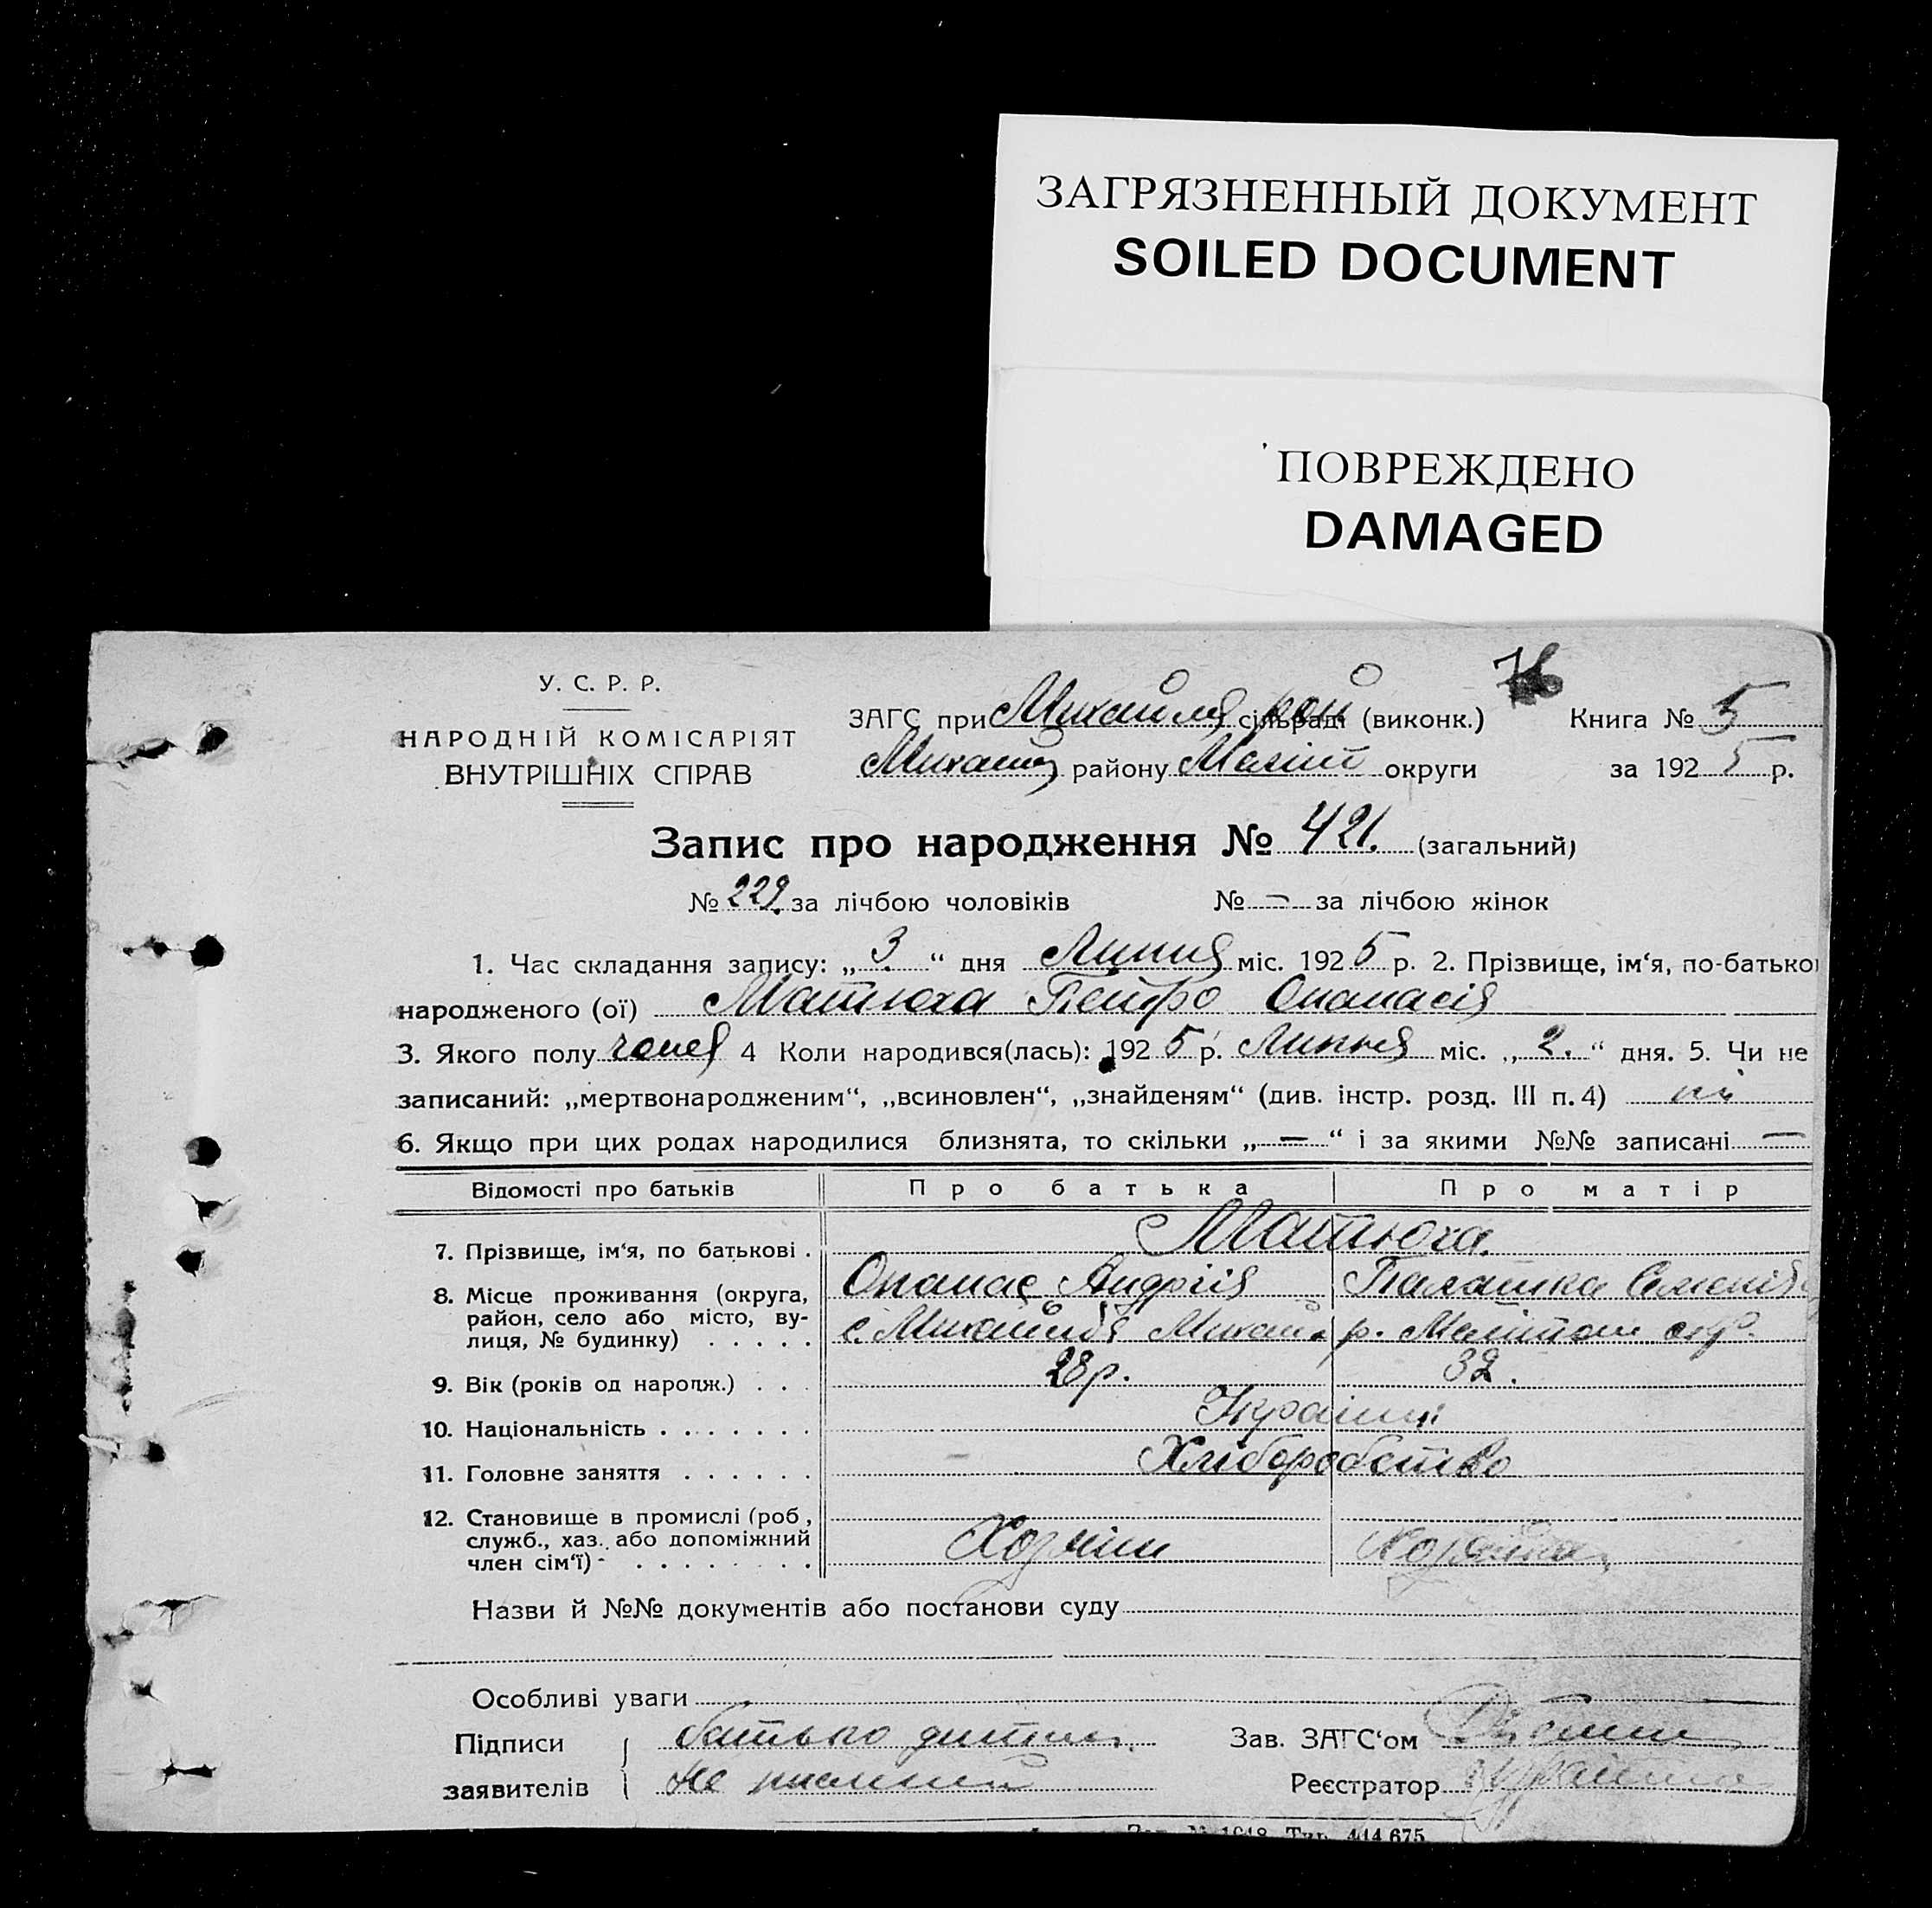 ЗАГРЯЗНЕННЫЙ ДОКУМЕНТ
SOILED DOCUMENT
ПОВРЕЖДЕНО
DAMAGED
У. С. Р. Р.
НАРОДНІЙ КОМІСАРІЯТ
ВНУТРІШНІХ СПРАВ
ЗАГС при сільраді (виконк.) Книга № 5
району округи за 1925 р.
Запис про народження № 421. (загальний)
№ 229. за лічбою чоловіків № – за лічбою жінок
1. Час складання запису: „3.“ дня Липня міс. 1925 р. 2. Прізвище, ім‘я, по-батьков
народженого (ої) Матюха Петро Опанасів
3. Якого полу чолов 4 Коли народився(лась): 1925 р. Липня міс. „2.“ дня. 5. Чи не
записаний: „мертвонародженим“, „всиновлен“, „знайденям“ (див. інстр. розд. III п. 4) ні
6. Якщо при цих родах народилися близнята, то скільки „—“ і за якими №№ записані —
Відомості про батьків Про батька Про матір
7. Прізвище, ім‘я, по батькові . Матюха.
Опанас Андріїв Палашка Семенів
8. Місце проживання (округа,
район, село або місто, ву-
лиця, № будинку) . . . . . с. Михайлів р. окр.
9. Вік (років од народж.) . . . 28 р. 32.
10. Національність . . . . . . . Українці
11. Головне заняття . . . . . . Хліборобство
12. Становище в промислі (роб,
служб., хаз. або допоміжний
член сім‘ї) - . . . . . . . . Хозяїн Хозяйка
Назви й №№ документів або постанови суду
Особливі уваги
Підписи батько дитини. Зав. ЗАГС‘ом
заявителів Не письмений Реєстратор
№ 1648 Тир. 444.675